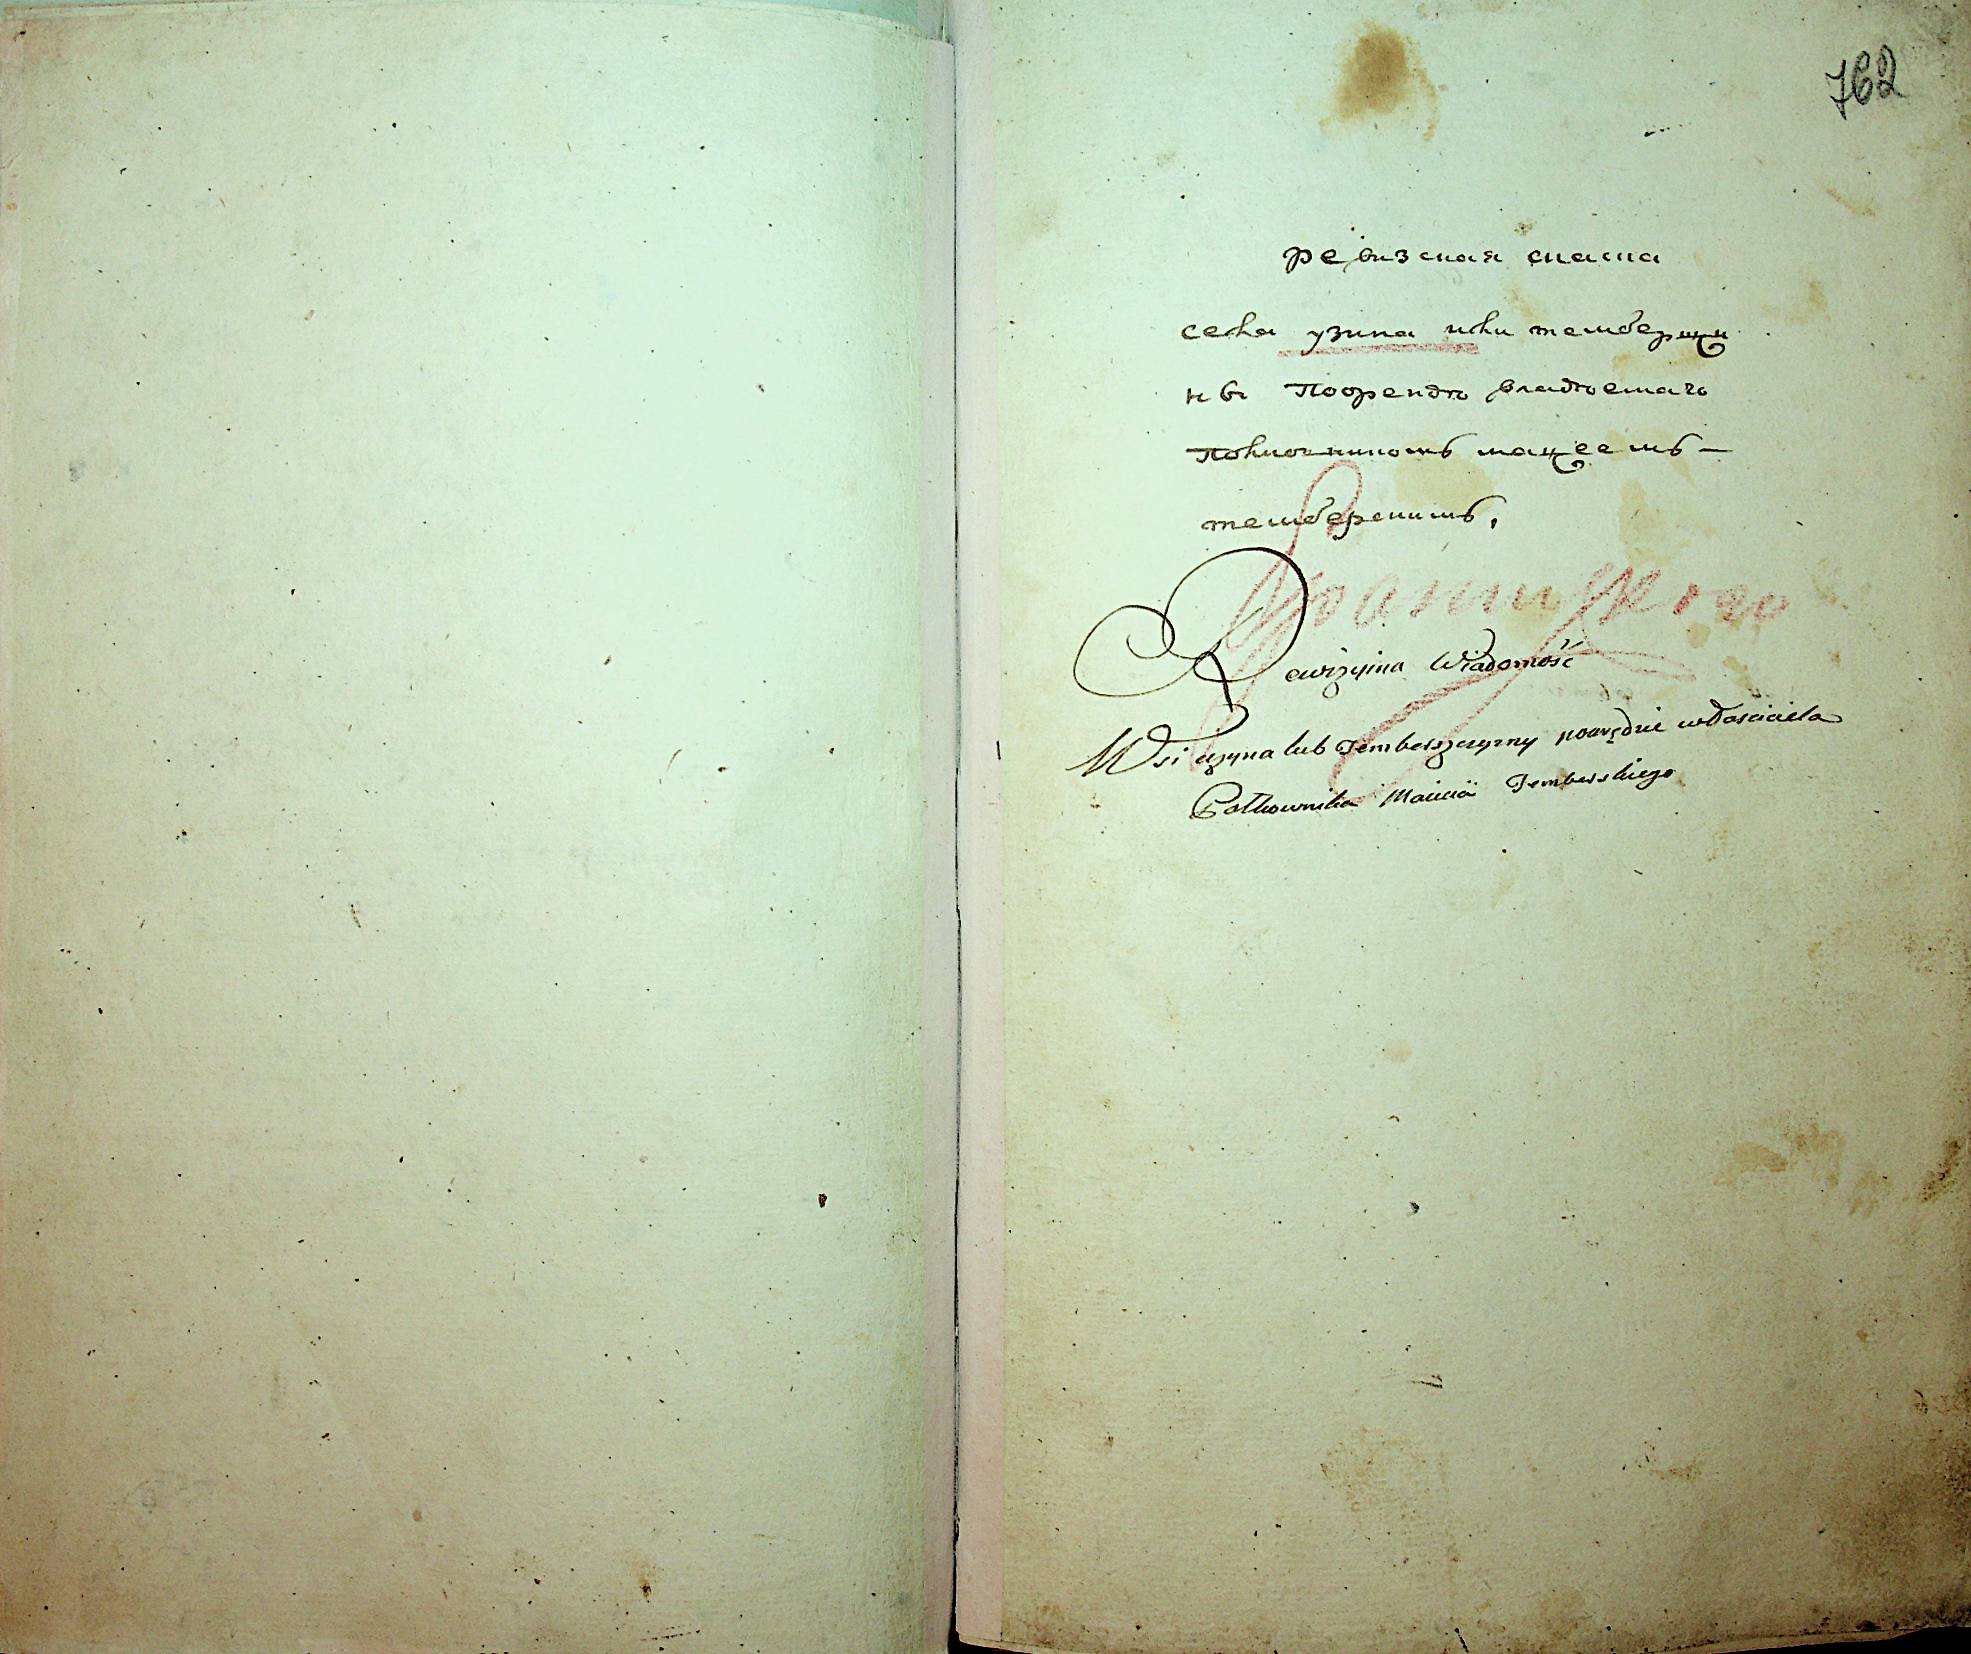 762
ревизская скаска
села узина или темберщи
ны Поорендѣ владѣемаго
Полковникомъ мацеемъ —
темберскимъ.
Rewizyina Wiadomość
Wsi uzyna lub Temberszczyzny poarędzie własciciela
Połkownika Macieia Temberskiego